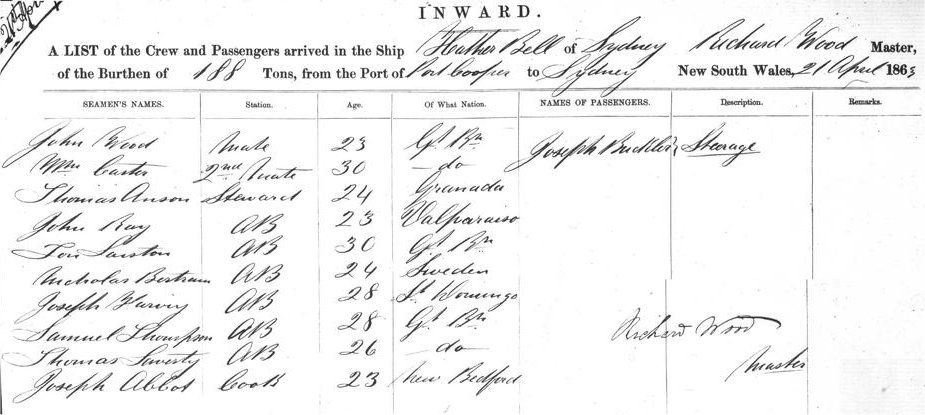 INWARD.
A LIST of the Crew and Passengers arrived in the Ship Heather Bell of Sydney Richard Wood Master,
of the Burthen of 188 Tons, from the Port of Port Cooper to Sydney New South Wales, 21 April 1863
SEAMEN'S NAMES. Station. Age. Of What Nation. NAMES OF PASSENGERS. Description. Remarks.
John Wood Mate 23 Gt Bn Joseph Buckler Steerage
Wm Carter 2nd Mate 30 do
Thomas Anson Steward 24 Granada
John Ray AB 23 Valparaiso
AB 30 Gt Bn
Nicholas Bertram AB 24 Sweden
Joseph AB 28 St Domingo
Samuel Thompson AB 28 Gt Bn
Thomas AB 26 do
Joseph Abbot Cook 23 New Bedford
Richard Wood
Master